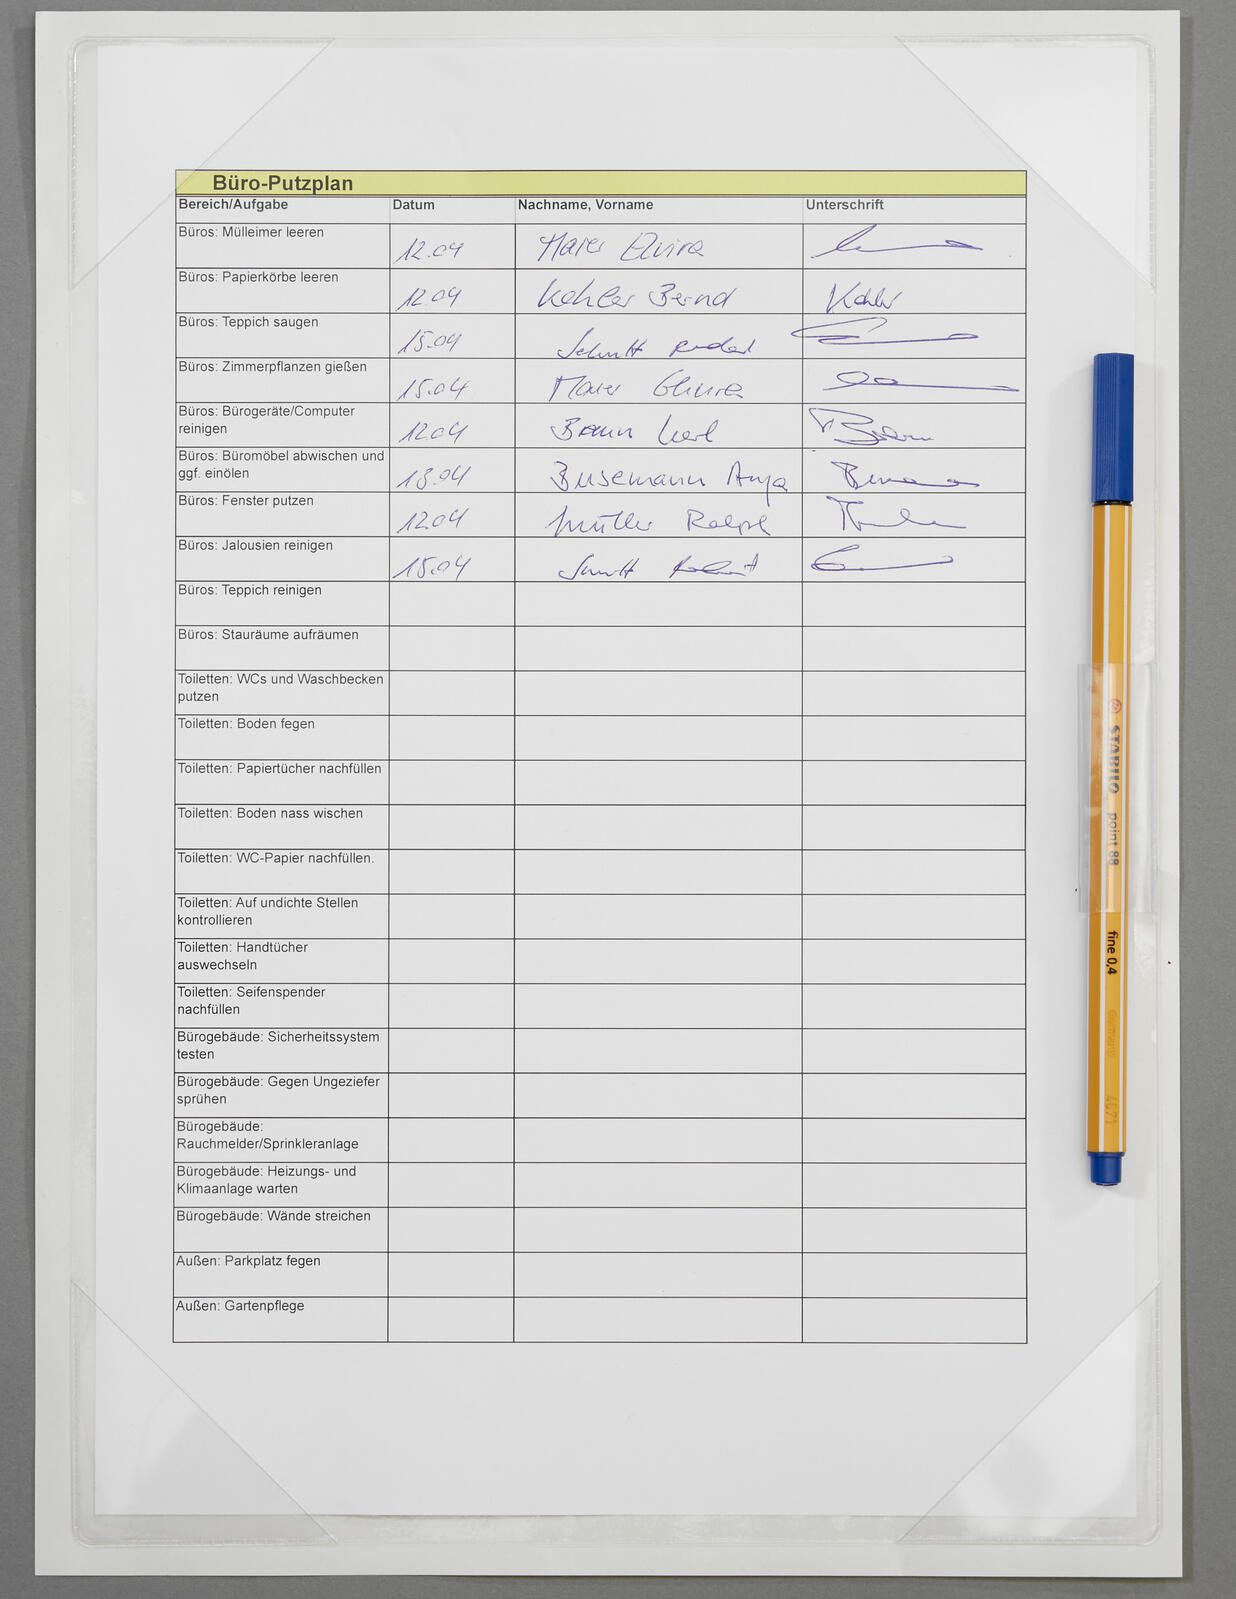 Büro-Putzplan
Bereich/Aufgabe Datum Nachname, Vorname Unterschrift
Büros: Mülleimer leeren 12.04 Maier Elvira
Büros: Papierkörbe leeren 12.04 Kohler Bernd Kohler
Büros: Teppich saugen 15.04 Schmitt
Büros: Zimmerpflanzen gießen 15.04 Maier Elvira
Büros: Bürogeräte/Computer
reinigen 12.04 Braun Karl Braun
Büros: Büromöbel abwischen und
ggf. einölen 13.04 Busemann Anja
Büros: Fenster putzen 12.04 Müller Ralph
Büros: Jalousien reinigen 15.04 Schmitt
Büros: Teppich reinigen
Büros: Stauräume aufräumen
Toiletten: WCs und Waschbecken
putzen
Toiletten: Boden fegen
Toiletten: Papiertücher nachfüllen
Toiletten: Boden nass wischen
Toiletten: WC-Papier nachfüllen.
Toiletten: Auf undichte Stellen
kontrollieren
Toiletten: Handtücher
auswechseln
Toiletten: Seifenspender
nachfüllen
Bürogebäude: Sicherheitssystem
testen
Bürogebäude: Gegen Ungeziefer
sprühen
Bürogebäude:
Rauchmelder/Sprinkleranlage
Bürogebäude: Heizungs- und
Klimaanlage warten
Bürogebäude: Wände streichen
Außen: Parkplatz fegen
Außen: Gartenpflege
STABILO point 88 fine 0,4 Germany